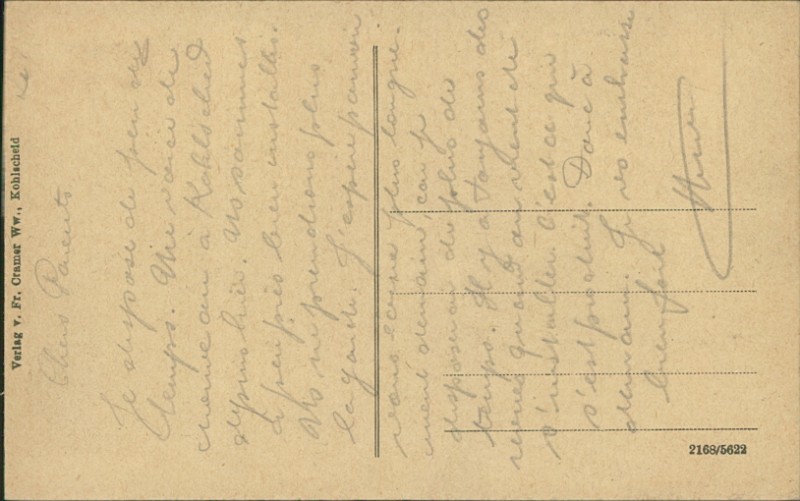 Chers Parents
Je dispose de peu de
temps. Me voici de
nouveau à Kohlscheid
depuis hier. Ns sommes
à peu près bien installés.
Ns ne prendrons plus
la garde. J'espère pouvoir
vous écrire plus longue-
ment demain, car je
disposerai de plus de
temps. Il y a toujours des
quand on vient de
s'installer. C'est ce qui
s'est produit. Donc à
demain. Je vs embrasse
bien fort
Verlag v. Fr. Cramer Ww., Kohlscheid
2168/5622